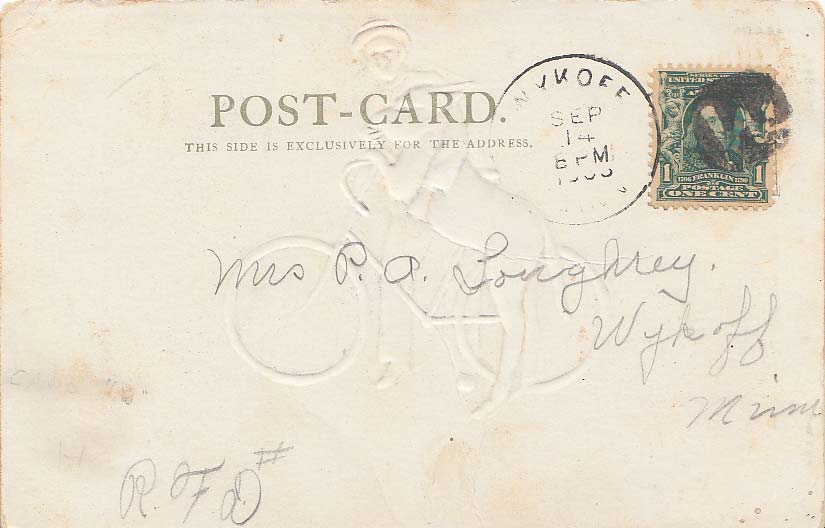 POST-CARD.
THIS SIDE IS EXCLUSIVELY FOR THE ADDRESS.
WYKOFF
SEP
14
6 PM
SERIES
UNITED STATES
1 1706 FRANKLIN 1790 1
POSTAGE
ONE CENT
Mrs P. A. Loughrey.
Wykoff
Minn
R. F. D #